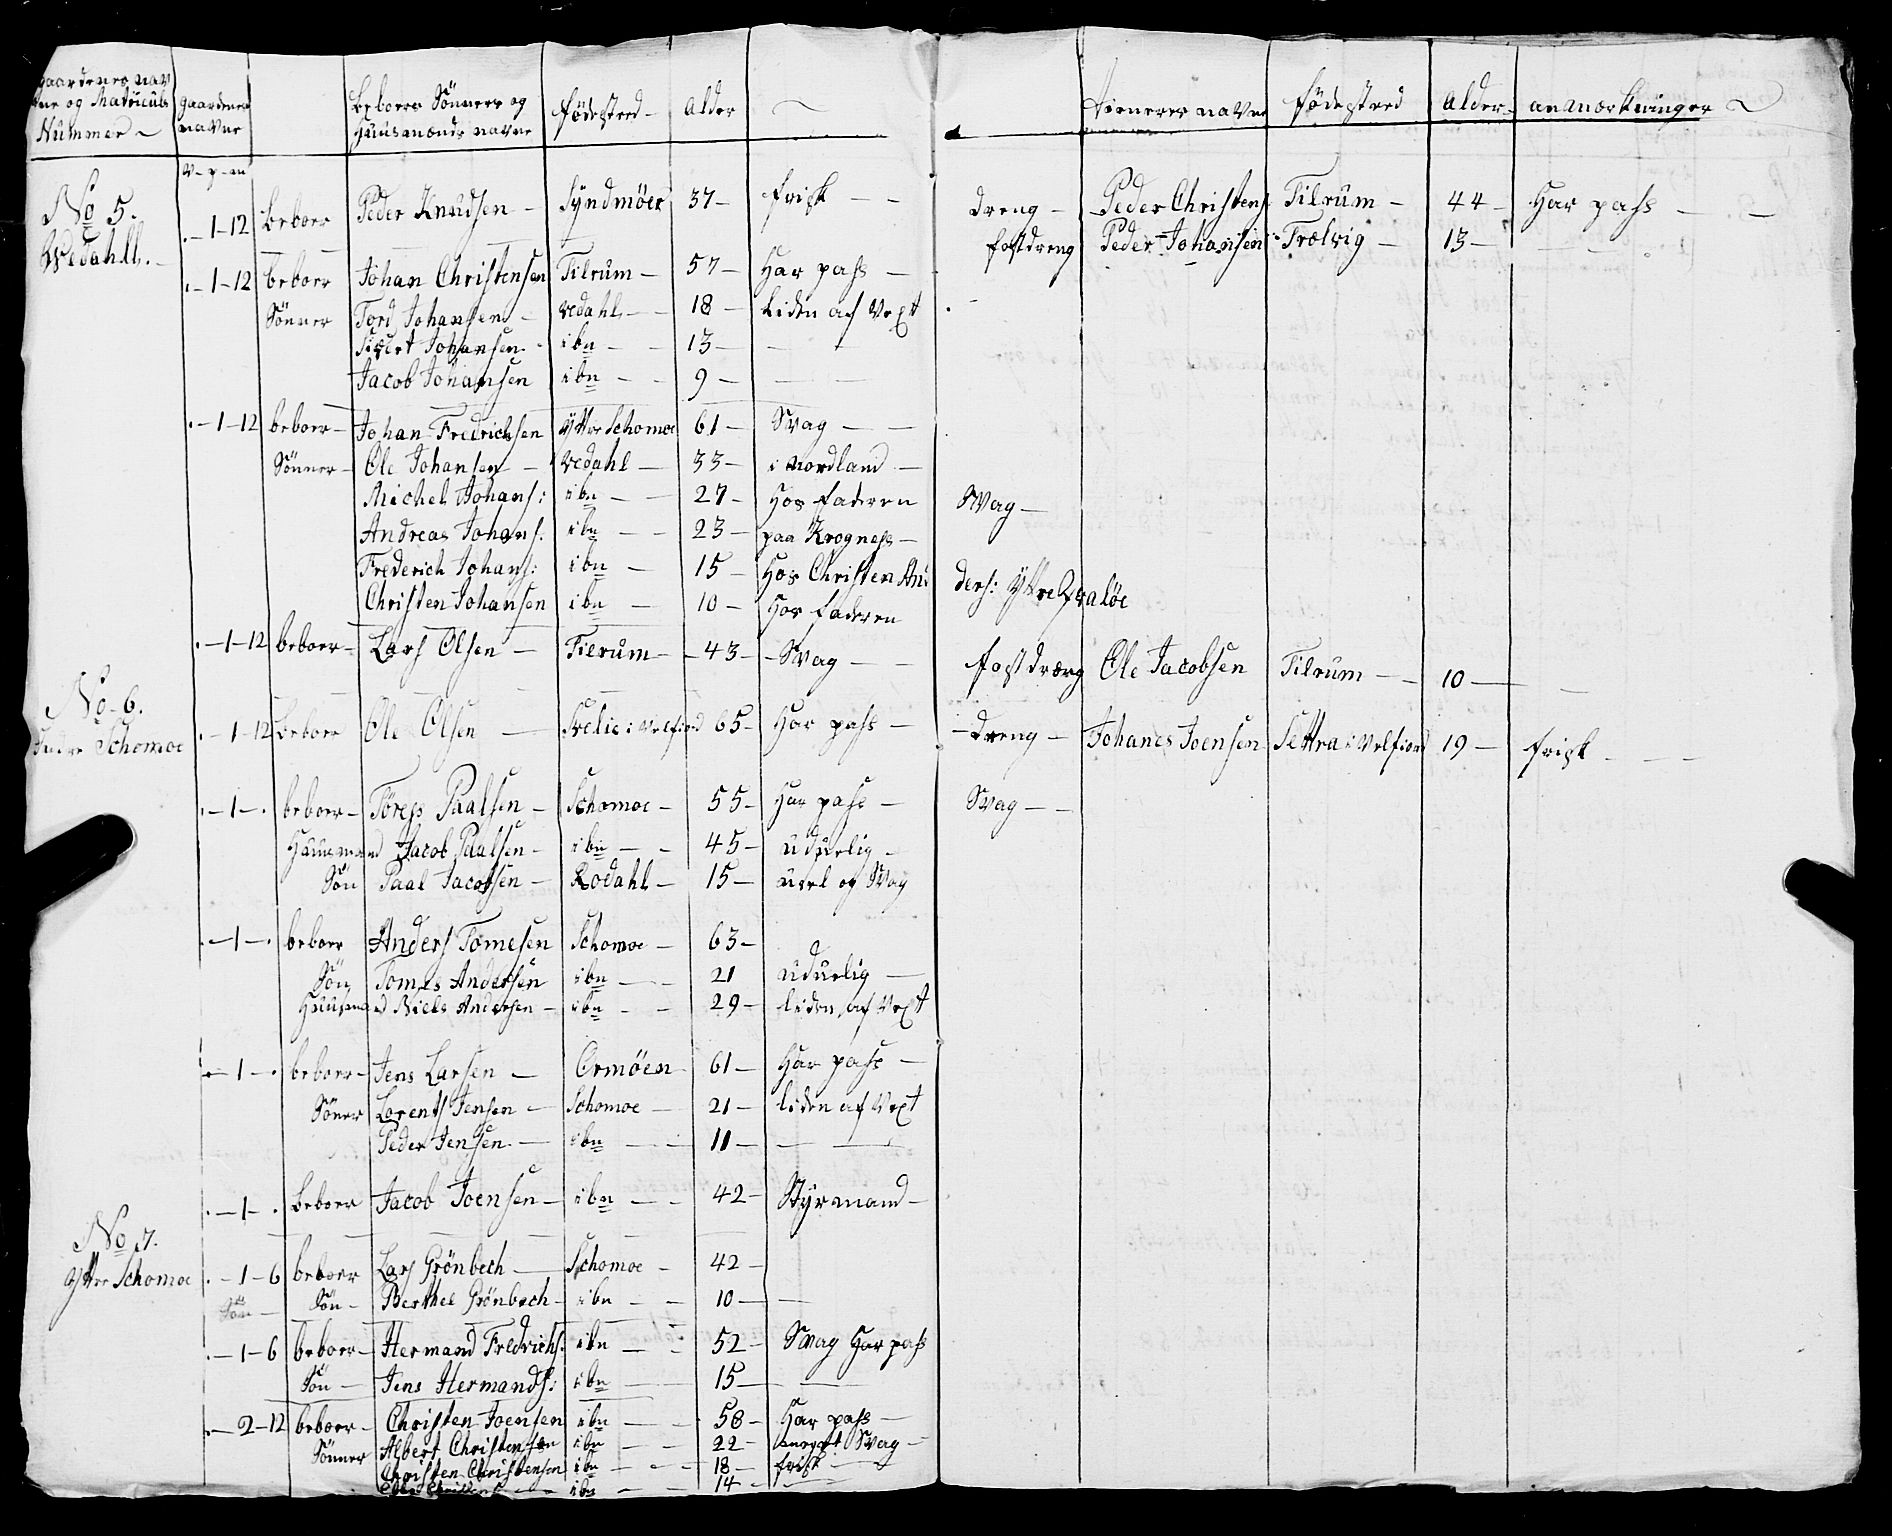 Gaardenes nav
ne og Matriculs
Nummer
Gaardenes
navne
Beboere Sönners og
Huusmænds navne
födested
Alder
Tieneres navne
födested
Alder
anmærkninger
V - p - m
No 5.
Wedahll.
- 1 - 12 beboer Peder Knudsen - Syndmöer 37 - frisk - -
Dreng - Peder Christens: Tilrum - 44 - Har pass -
fostdreng Peder Johansen Trælvig - 13 -
- 1 - 12 beboer Johan Christensen Tilrum - 57 - Har pass -
Sönner Tord Johansen - Vedahl - 18 - liden af Vext
Sivert Johansen - ibn - - 13 - -
Jacob Johansen ibn - - 9 - -
- 1 - 12 beboer - Johan Fredrichsen Yttre Schomoe 61 - Svag - -
Sönner - Ole Johansen - Vedahl - 33 - i Nordland -
Michel Johans: ibn - - 27 - Hos faderen Svag -
Andreas Johans: ibn - - 23 - paa Krogness -
Frederich Johans: ibn - 15 - Hos Christen An
ders: Yttre Qvalöe
Christen Johansen ibn - 10 - Hos faderen
- 1 - 12 beboer - Lars Olsen - Tilrum - 43 - Svag - -
fostdræng Ole Jacobsen Tilrum - - 10 -
No 6.
Indre Schomoe
- 1 - 12 beboer Ole Olsen - Svelie i Velfiord 65 - Har pass -
- Dreng - Johanes Joensen Settra i Velfiord 19 - frisk - - -
- 1 - beboer - Törres Paalsen - Schomoe - 55 - Har pass - Svag - -
Huusmand Jacob Paalsen - ibn - - 45 - uduelig -
Sön Paal Jacobsen - Rodahl - 15 - usel og Svag
- 1 - beboer Anders Tomesen Schomoe - 63 -
Sön Tomes Andersen ibn - - 21 uduelig -
Huusmand Niels Andersen - ibn - - 29 - liden af Vext
- 1 - beboer - Jens Larsen - Ormöen 61 - Har pass -
Söner Lorents Jensen - Schomoe - 21 - liden af Vext
Peder Jensen - ibn - - 11 - - -
- 1 - beboer Jacob Joensen - ibn - - 42 - Styrmand -
No 7.
Yttre Schomoe
- 1 - 6 beboer Lars Grönbech - Schomoe - 42 -
Sön - Sön - Berthel Grönbech - ibn - - 10 - -
- 1 - 6 beboer - Hermand Fredrichs: ibn - - 52 - Svag Har pass
Sön - Jens Hermands: ibn - - 15 - -
- 2 - 12 beboer - Christen Joensen ibn - - 58 - Har pass -
Sönner Albert Christensen ibn - - 22 - Svag -
Christen Christensen ibn - - 18 - frisk -
ibn - 14 - -